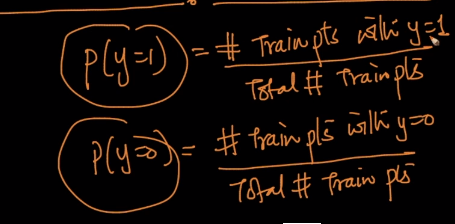 P(y=1) = # Train pts with y=1
Total # Train pts
P(y=0) = # Train pts with y=0
Total # Train pts